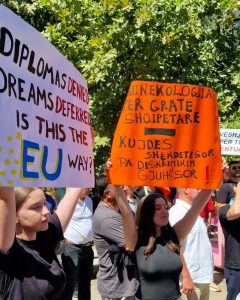 DIPLOMAS DENIED
DREAMS DEFERRED
IS THIS THE
EU WAY?
GJINEKOLOGJIA
PËR GRATË
SHQIPTARE
=
KUJDES
SHËNDETËSOR
PA DISKRIMIM
GJUHËSOR !